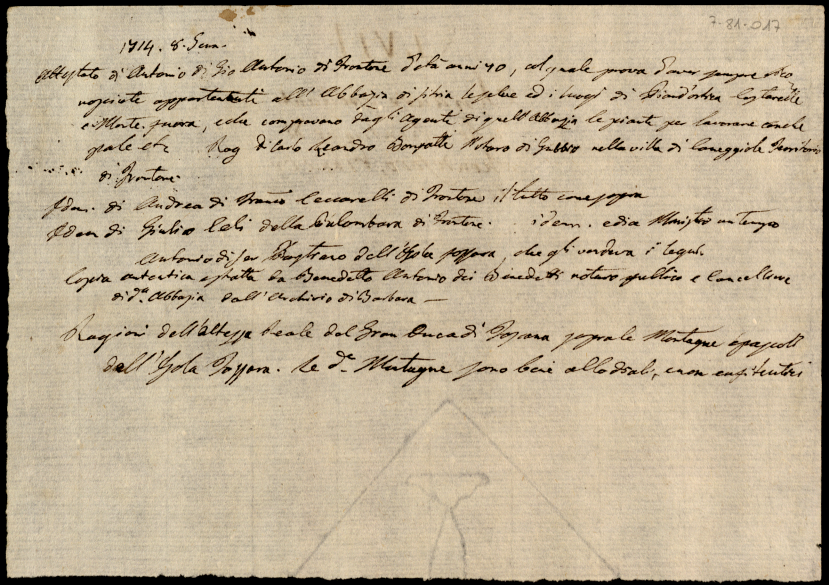 7-81-017
1714. 8. Genn.
Attestato di Antonio di Gio Antonio di Frontone d'età anni 70, col quale prova d'aver sempre
appartenenti all'Abbazia di Sitria le selve ed i luoghi di
e Morte, e che compravano dagli Agenti di quell'Abbazia le piante per lavorare conche
pale etc. Rog. di Carlo Leandro Notaro di Gubbio nella villa di Caneggiole Territorio
di Frontone.
Idem. di Andrea di Franco Ceccarelli di Frontone il tutto come sopra
Idem di Giulio Celi della Palombara di Frontone. idem. e di a Ministri un tempo
Antonio di ser dell'Isola Fossara, che gli vendeva i legni.
Copia autentica estratta da Benedetto Antonio dei Benedetti notaro pubblico e Cancelliere
di d.ª Abbazia dall'Archivio di Barbara —
Ragioni dell'Altezza Reale del Gran Duca di Toscana sopra le Montagne e pascoli
dell'Isola Fossara. Le d.e Montagne sono beni allodiali, e non enfiteutici